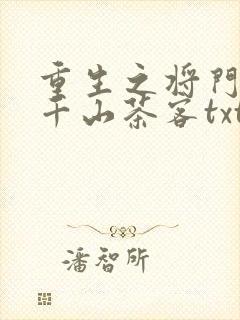 重生之将门
千山茶客txt
潘智所